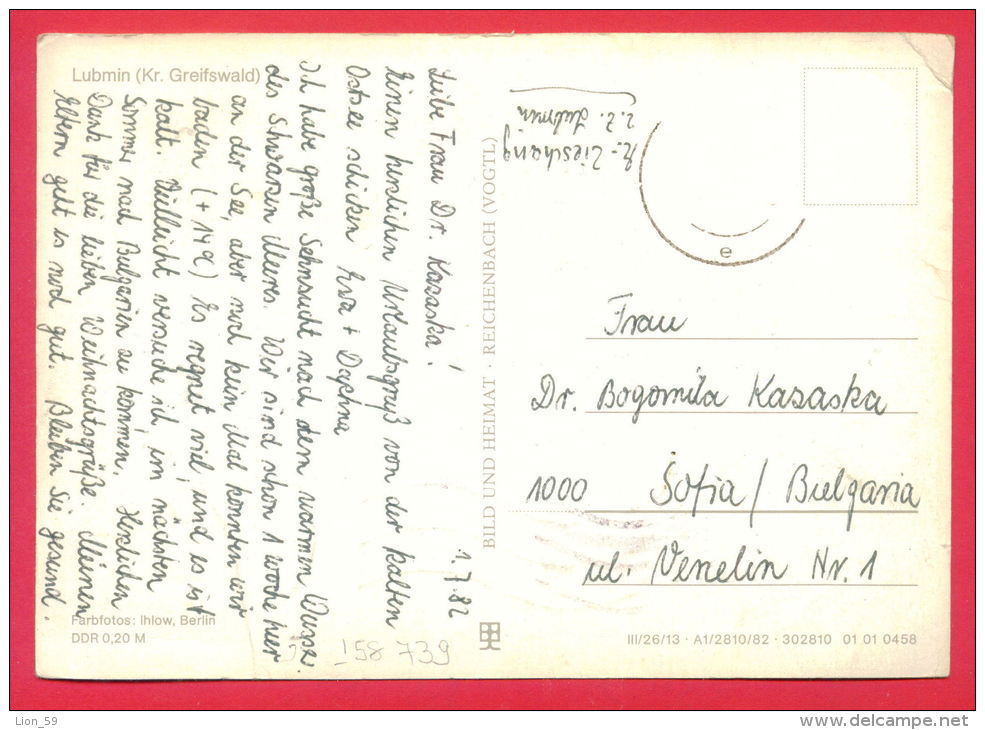 Lubmin (Kr. Greifswald)
1.7.82
Liebe Frau Dr. Kasaska!
Einen herzlichen Urlaubsgruß von der kalten
Ostsee schicken Eva + Daphna
Ich habe große Sehnsucht nach dem warmen Wasser
des Schwarzen Meeres. Wir sind schon 1 Woche hier
an der See, aber noch kein Mal konnten wir
baden (+14°) Es regnet viel, und es ist
kalt. Vielleicht versuche ich, im nächsten
Sommer nach Bulgarien zu kommen. Herzlichen
Dank für die lieben Weihnachtsgrüße. Meinen
Eltern geht es noch gut. Bleiben Sie gesund.
E. Zieschang
z.Z. Lubmin
BILD UND HEIMAT · REICHENBACH (VOGTL)
e
Frau
Dr. Bogomila Kasaska
1000 Sofia / Bulgaria
ul. Venelin Nr. 1
Farbfotos: Ihlow, Berlin
DDR 0,20 M
158 739
III/26/13 · A1/2810/82 · 302810 01 01 0458
Lion_59
www.delcampe.net